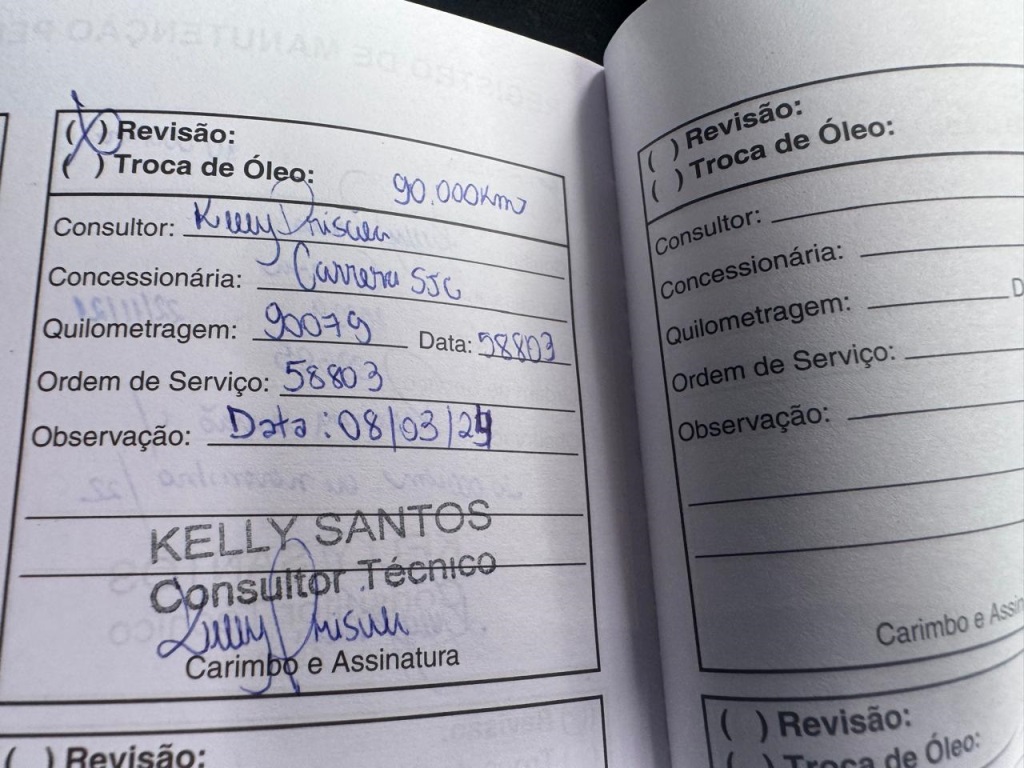 (X) Revisão:
( ) Troca de Óleo: 90.000Km
Consultor: Kelly Priscila
Concessionária: Carrera SJC
Quilometragem: 90079 Data: 58803
Ordem de Serviço: 58803
Observação: Data: 08/03/24
KELLY SANTOS
Consultor Técnico
Carimbo e Assinatura
( ) Revisão:
( ) Revisão:
( ) Troca de Óleo:
Consultor:
Concessionária:
Quilometragem:
Ordem de Serviço:
Observação:
Carimbo e
( ) Revisão:
( ) Troca de Óleo: